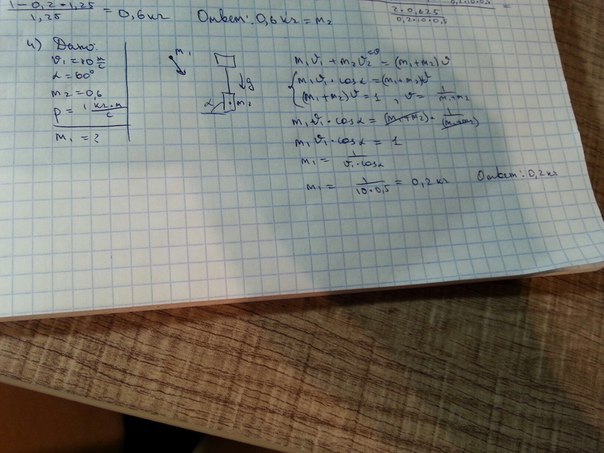 1 - 0,2 * 1,25 / 1,25 = 0,6 кг Ответ: 0,6 кг = m₂
0,2*10*0,5 =
2*0,625 / 0,2*10*0,5
4) Дано:
v₁ = 10 м/с
α = 60°
m₂ = 0,6
p = 1 кг*м/с
m₁ = ?
m₁
g
α
m₂
m₁v₁ + m₂v₂ = (m₁+m₂)v
=0
m₁v₁ · cosα = (m₁+m₂)v
(m₁+m₂)v = 1 , v = 1/(m₁+m₂)
m₁v₁ · cosα = (m₁+m₂) · 1/(m₁+m₂)
m₁v₁ · cosα = 1
m₁ = 1/(v₁ · cosα)
m₁ = 1/(10*0,5) = 0,2 кг Ответ: 0,2 кг